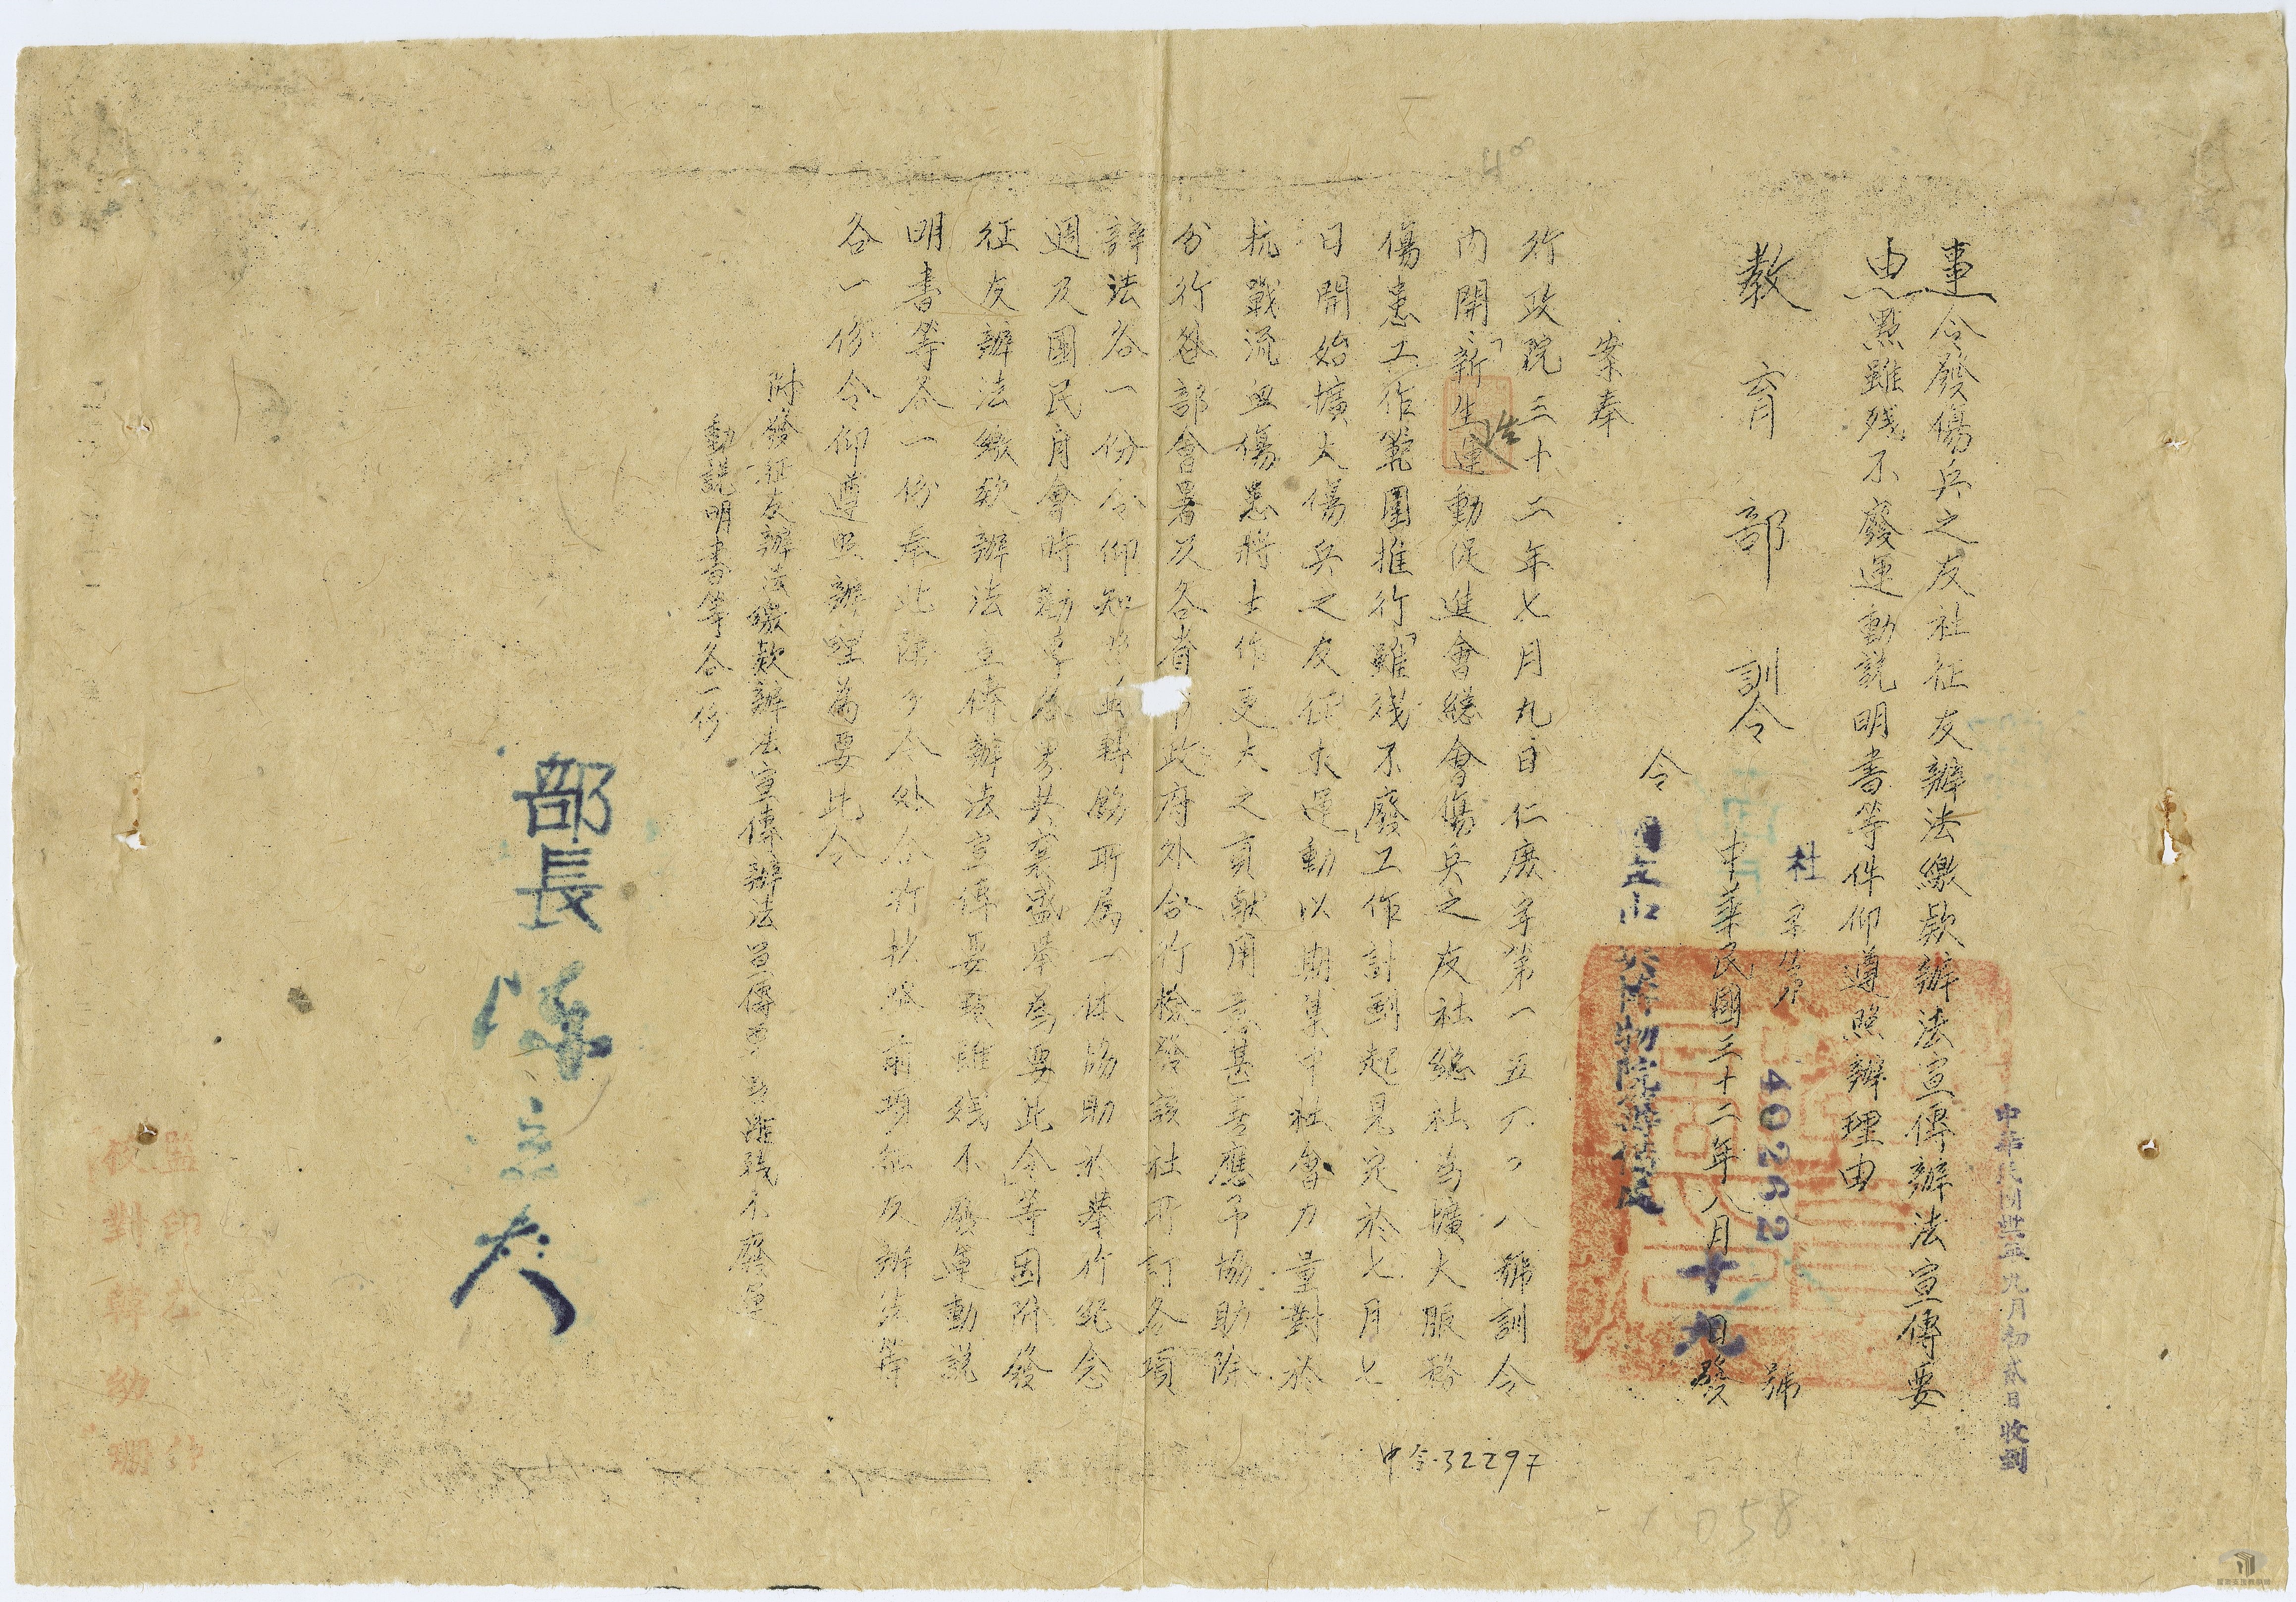 中華民國卅二年九月初貳日收到
事令發傷兵之友社征友辦法繳款辦法宣傳辦法宣傳要
由點雖殘不廢運動說明書等件仰遵照辦理由
教育部訓令
社字第40262號
中華民國三十二年八月十九日發
令國立中央博物院籌備處
案奉
行政院三十二年七月九日仁庶字第一五八號訓令
內開：「新生運動促進會總會傷兵之友社總社為擴大服務
傷患工作範圍推行「雖殘不廢」工作計劃起見定於七月七
日開始擴大傷兵之友征求運動以期集中社會力量對於
抗戰流血傷患將士作更大之貢獻用意甚善應予協助除
分行各部會署及各省市政府外合行檢發該社所訂各項
辦法各一份令仰知照並轉飭所屬一体協助於舉行紀念
週及國民月會時勸導參共襄盛舉為要此令」等因附發
征友辦法繳款辦法宣傳辦法宣傳要項雖殘不廢運動說
明書等各一份奉此除分令外合行抄發前項征友辦法等
各一份令仰遵照辦理為要此令
附發征友辦法繳款辦法宣傳辦法宣傳要點雖殘不廢運
動說明書等各一份
部長陳立夫
監印
校對韓幼珊
中令32297
058